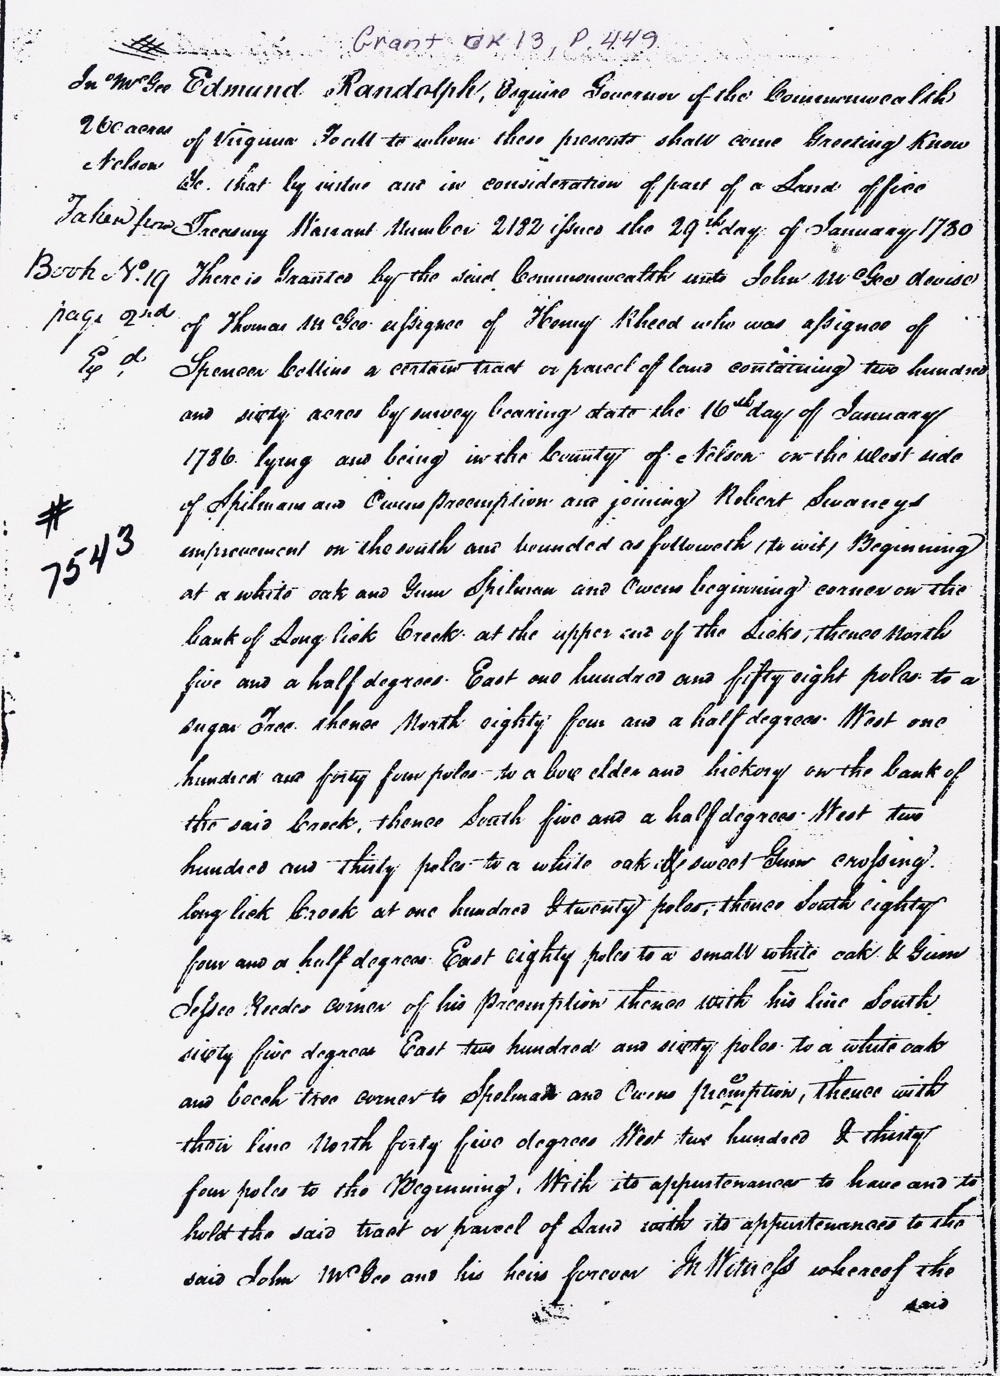 Grant BK 13, P. 449
Jno McGee
260 acres
Nelson
Taken from
Book No. 19
page 2nd
Exd.
#
7543
Edmund Randolph, Esquire Governor of the Commonwealth
of Virginia To all to whom these presents shall come Greeting Know
Ye. that by virtue and in consideration of part of a Land office
Treasury Warrant Number 2182 issued the 29th day of January 1780
There is Granted by the said Commonwealth unto John McGee devisee
of Thomas McGee assignee of Henry Rheed who was assignee of
Spencer Collins a certain tract or parcel of land containing two hundred
and sixty acres by survey bearing date the 16th day of January
1786. lying and being in the County of Nelson on the West side
of Spilmans and Owens Preemption and joining Robert Swaneys
improvement on the south and bounded as followeth (to wit) Beginning
at a white oak and Gum Spilman and Owens beginning corner on the
bank of Long lick Creek at the upper end of the Licks, thence North
five and a half degrees East one hundred and fifty eight poles to a
sugar Tree thence North eighty four and a half degrees West one
hundred and forty four poles to a box elder and hickory on the bank of
the said Creek, thence South five and a half degrees West two
hundred and thirty poles to a white oak & sweet Gum crossing
long lick Creek at one hundred & twenty poles, thence South eighty
four and a half degrees East eighty poles to a small white oak & Gum
Jessee Reeder corner of his Preemption thence with his line South
sixty five degrees East two hundred and sixty poles to a white oak
and beech tree corner to Spelman and Owens Preemption, thence with
their line North forty five degrees West two hundred & thirty
four poles to the Beginning. With its appurtenances to have and to
hold the said tract or parcel of Land with its appurtenances to the
said John McGee and his heirs forever In Witness whereof the
said